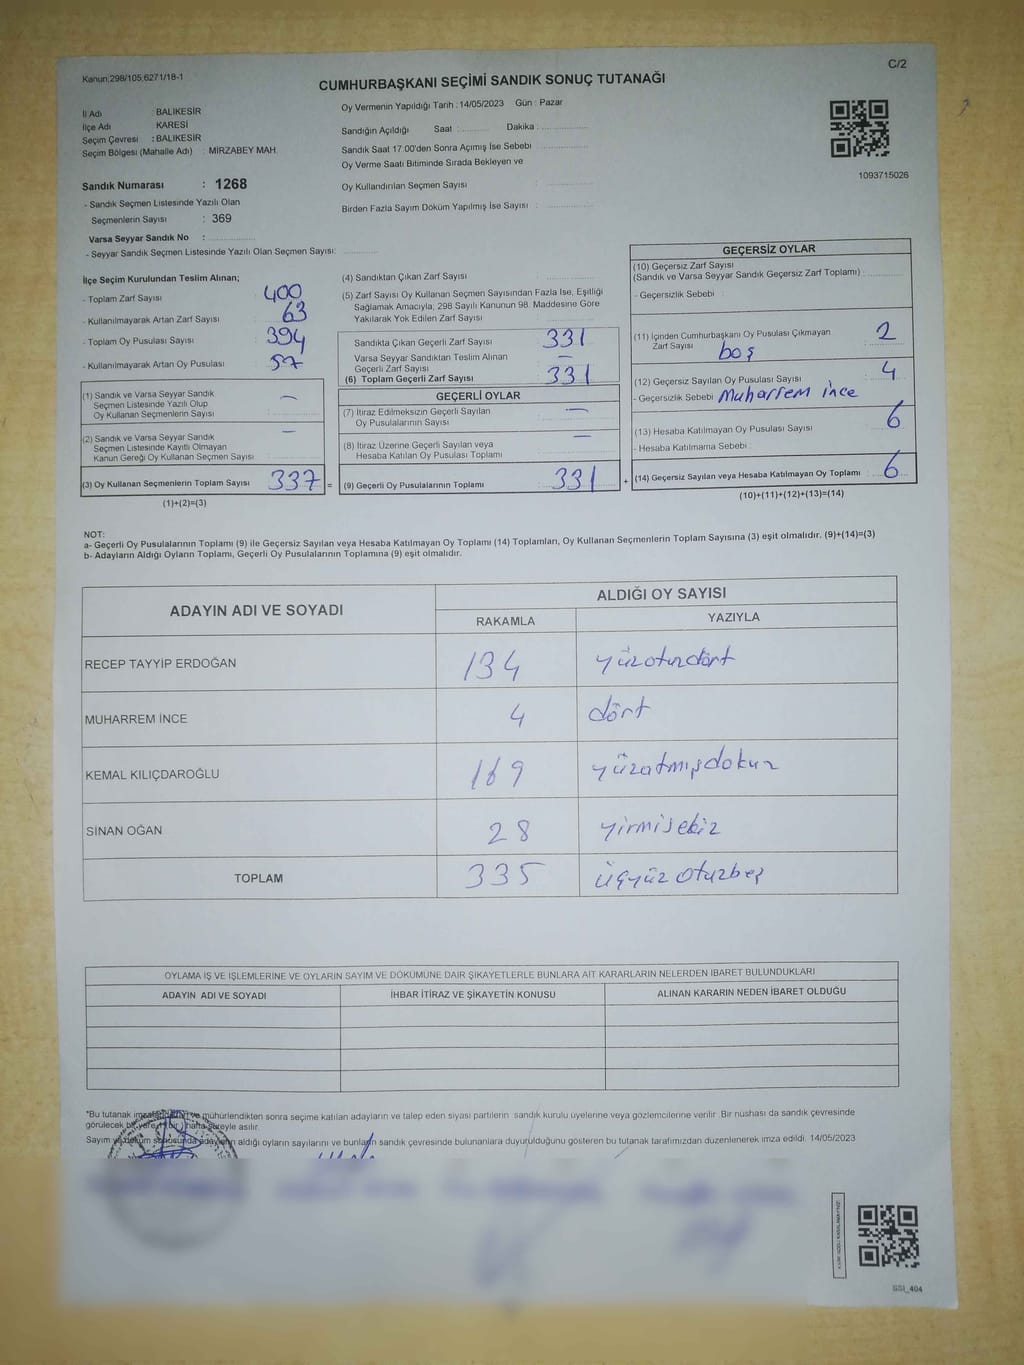 Kanun:298/105;6271/18-1
C/2
CUMHURBAŞKANI SEÇİMİ SANDIK SONUÇ TUTANAĞI
İl Adı : BALIKESİR
İlçe Adı KARESİ
Seçim Çevresi : BALIKESİR
Seçim Bölgesi (Mahalle Adı) : MİRZABEY MAH.
Sandık Numarası : 1268
- Sandık Seçmen Listesinde Yazılı Olan
Seçmenlerin Sayısı : 369
Varsa Seyyar Sandık No :
- Seyyar Sandık Seçmen Listesinde Yazılı Olan Seçmen Sayısı:
Oy Vermenin Yapıldığı Tarih : 14/05/2023 Gün : Pazar
Sandığın Açıldığı Saat : Dakika :
Sandık Saat 17:00'den Sonra Açımış İse Sebebi
Oy Verme Saati Bitiminde Sırada Bekleyen ve
Oy Kullandırılan Seçmen Sayısı :
Birden Fazla Sayım Döküm Yapılmış İse Sayısı :
1093715026
İlçe Seçim Kurulundan Teslim Alınan;
- Toplam Zarf Sayısı : 400
- Kullanılmayarak Artan Zarf Sayısı : 63
- Toplam Oy Pusulası Sayısı : 394
- Kullanılmayarak Artan Oy Pusulası : 57
(1) Sandık ve Varsa Seyyar Sandık
Seçmen Listesinde Yazılı Olup
Oy Kullanan Seçmenlerin Sayısı : —
(2) Sandık ve Varsa Seyyar Sandık
Seçmen Listesinde Kayıtlı Olmayan
Kanun Gereği Oy Kullanan Seçmen Sayısı : —
(3) Oy Kullanan Seçmenlerin Toplam Sayısı 337 =
(1)+(2)=(3)
(4) Sandıktan Çıkan Zarf Sayısı
(5) Zarf Sayısı Oy Kullanan Seçmen Sayısından Fazla İse, Eşitliği
Sağlamak Amacıyla; 298 Sayılı Kanunun 98. Maddesine Göre
Yakılarak Yok Edilen Zarf Sayısı :
Sandıkta Çıkan Geçerli Zarf Sayısı 331
Varsa Seyyar Sandıktan Teslim Alınan
Geçerli Zarf Sayısı —
(6) Toplam Geçerli Zarf Sayısı : 331
GEÇERLİ OYLAR
(7) İtiraz Edilmeksizin Geçerli Sayılan
Oy Pusulasının Sayısı : —
(8) İtiraz Üzerine Geçerli Sayılan veya
Hesaba Katılan Oy Pusulası Toplamı : —
(9) Geçerli Oy Pusulalarının Toplamı 331 +
GEÇERSİZ OYLAR
(10) Geçersiz Zarf Sayısı
(Sandık ve Varsa Seyyar Sandık Geçersiz Zarf Toplamı) :
- Geçersizlik Sebebi :
(11) İçinden Cumhurbaşkanı Oy Pusulası Çıkmayan
Zarf Sayısı boş : 2
(12) Geçersiz Sayılan Oy Pusulası Sayısı : 4
- Geçersizlik Sebebi Muharrem ince
(13) Hesaba Katılmayan Oy Pusulası Sayısı : 6
- Hesaba Katılmama Sebebi :
(14) Geçersiz Sayılan veya Hesaba Katılmayan Oy Toplamı : 6
(10)+(11)+(12)+(13)=(14)
NOT:
a- Geçerli Oy Pusulalarının Toplamı (9) ile Geçersiz Sayılan veya Hesaba Katılmayan Oy Toplamı (14) Toplamları, Oy Kullanan Seçmenlerin Toplam Sayısına (3) eşit olmalıdır. (9)+(14)=(3)
b- Adayların Aldığı Oyların Toplamı, Geçerli Oy Pusulalarının Toplamına (9) eşit olmalıdır.
ADAYIN ADI VE SOYADI
ALDIĞI OY SAYISI
RAKAMLA YAZIYLA
RECEP TAYYİP ERDOĞAN 134 yüzotuzdört
MUHARREM İNCE 4 dört
KEMAL KILIÇDAROĞLU 169 yüzatmışdokuz
SİNAN OĞAN 28 yirmisekiz
TOPLAM 335 üçyüz otuzbeş
OYLAMA İŞ VE İŞLEMLERİNE VE OYLARIN SAYIM VE DÖKÜMÜNE DAİR ŞİKAYETLERLE BUNLARA AİT KARARLARIN NELERDEN İBARET BULUNDUKLARI
ADAYIN ADI VE SOYADI İHBAR İTİRAZ VE ŞİKAYETİN KONUSU ALINAN KARARIN NEDEN İBARET OLDUĞU
*Bu tutanak ve mühürlendikten sonra seçime katılan adayların ve talep eden siyasi partilerin sandık kurulu üyelerine veya gözlemcilerine verilir. Bir nüshası da sandık çevresinde
görülecek bir yere (1 bir) hafta süreyle asılır.
Sayım ve döküm sonucunda adayların aldığı oyların sayılarını ve bunların sandık çevresinde bulunanlara duyurulduğunu gösteren bu tutanak tarafımızdan düzenlenerek imza edildi. 14/05/2023
SSI_404